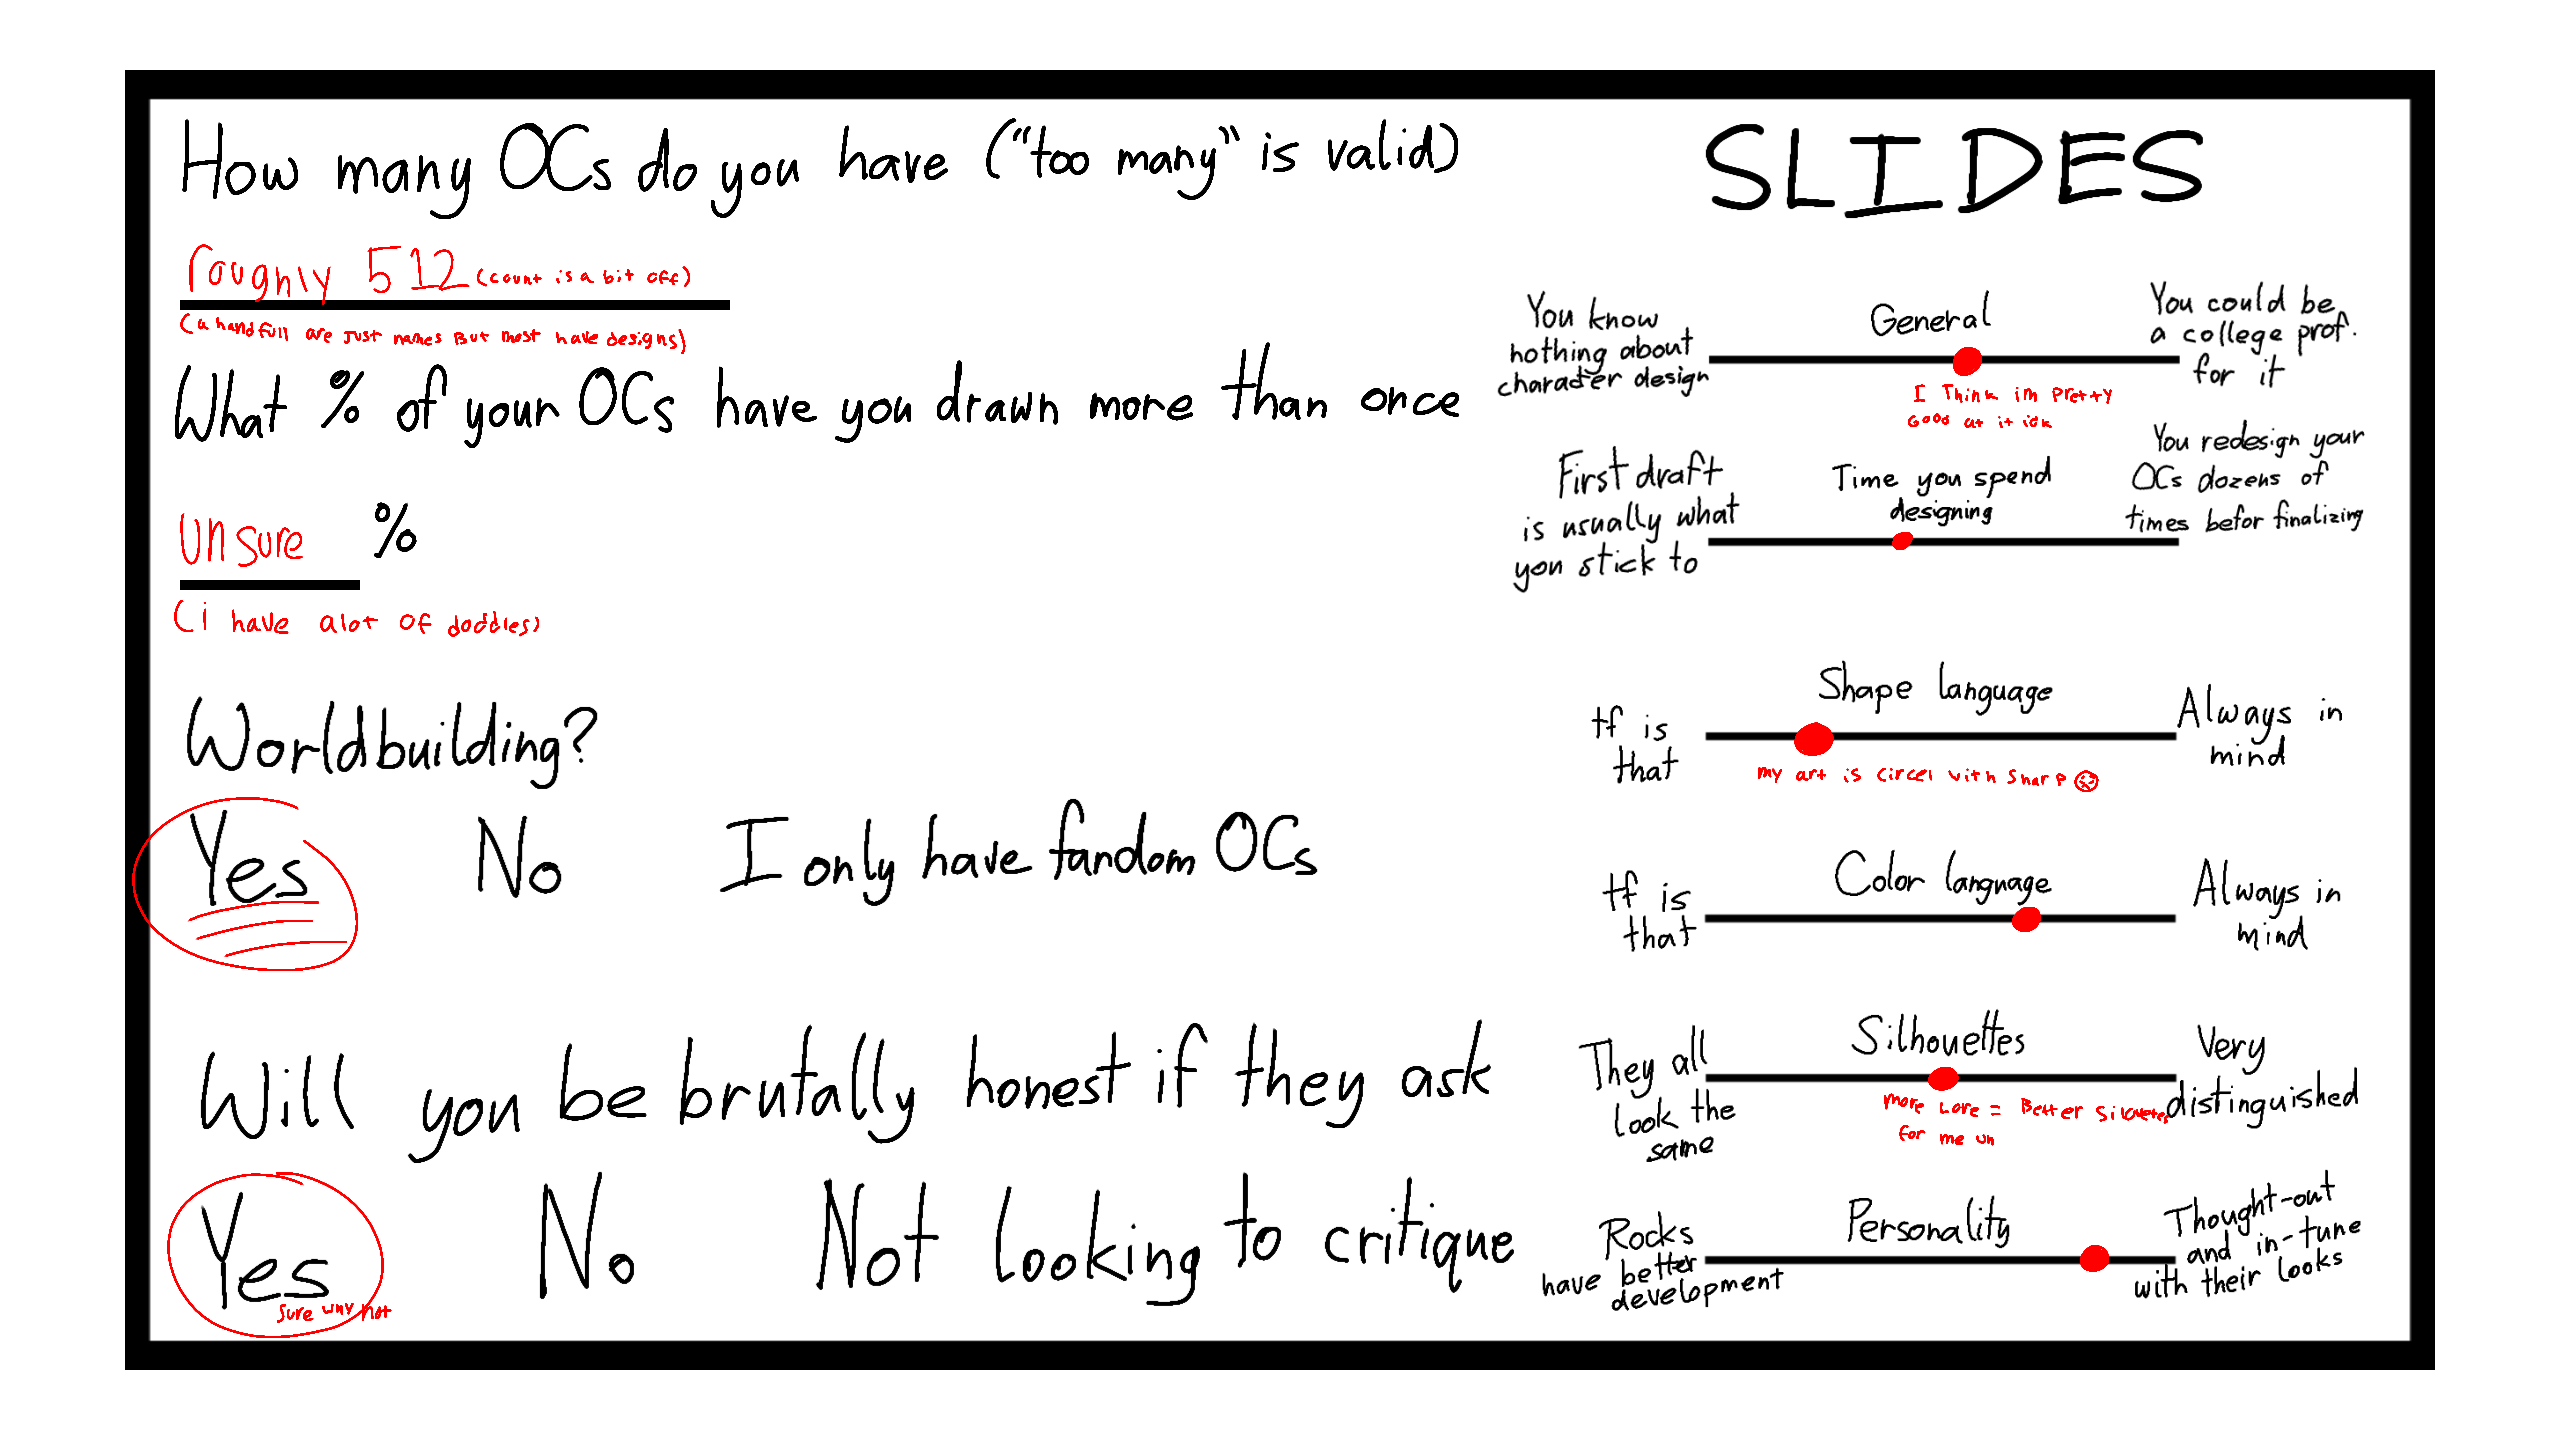 How many OCs do you have ("too many" is valid)
roughly 512 (count is a bit off)
(a handfull are just names But most have designs)
What % of your OCs have you drawn more than once
unsure %
(i have alot of doddles)
Worldbuilding?
Yes No I only have fandom OCs
Will you be brutally honest if they ask
Yes No Not looking to critique
sure why not
SLIDES
General
You know
nothing about
character design
You could be
a college prof.
for it
I Think im Pretty
Good at it idk
Time you spend
designing
First draft
is usually what
you stick to
You redesign your
OCs dozens of
times befor finalizing
Shape language
tf is
that
Always in
mind
my art is circel with sharp
Color language
tf is
that
Always in
mind
Silhouettes
They all
look the
same
Very
distinguished
more Lore = Better
for me
Personality
Rocks
have better
development
Thought-out
and in-tune
with their looks